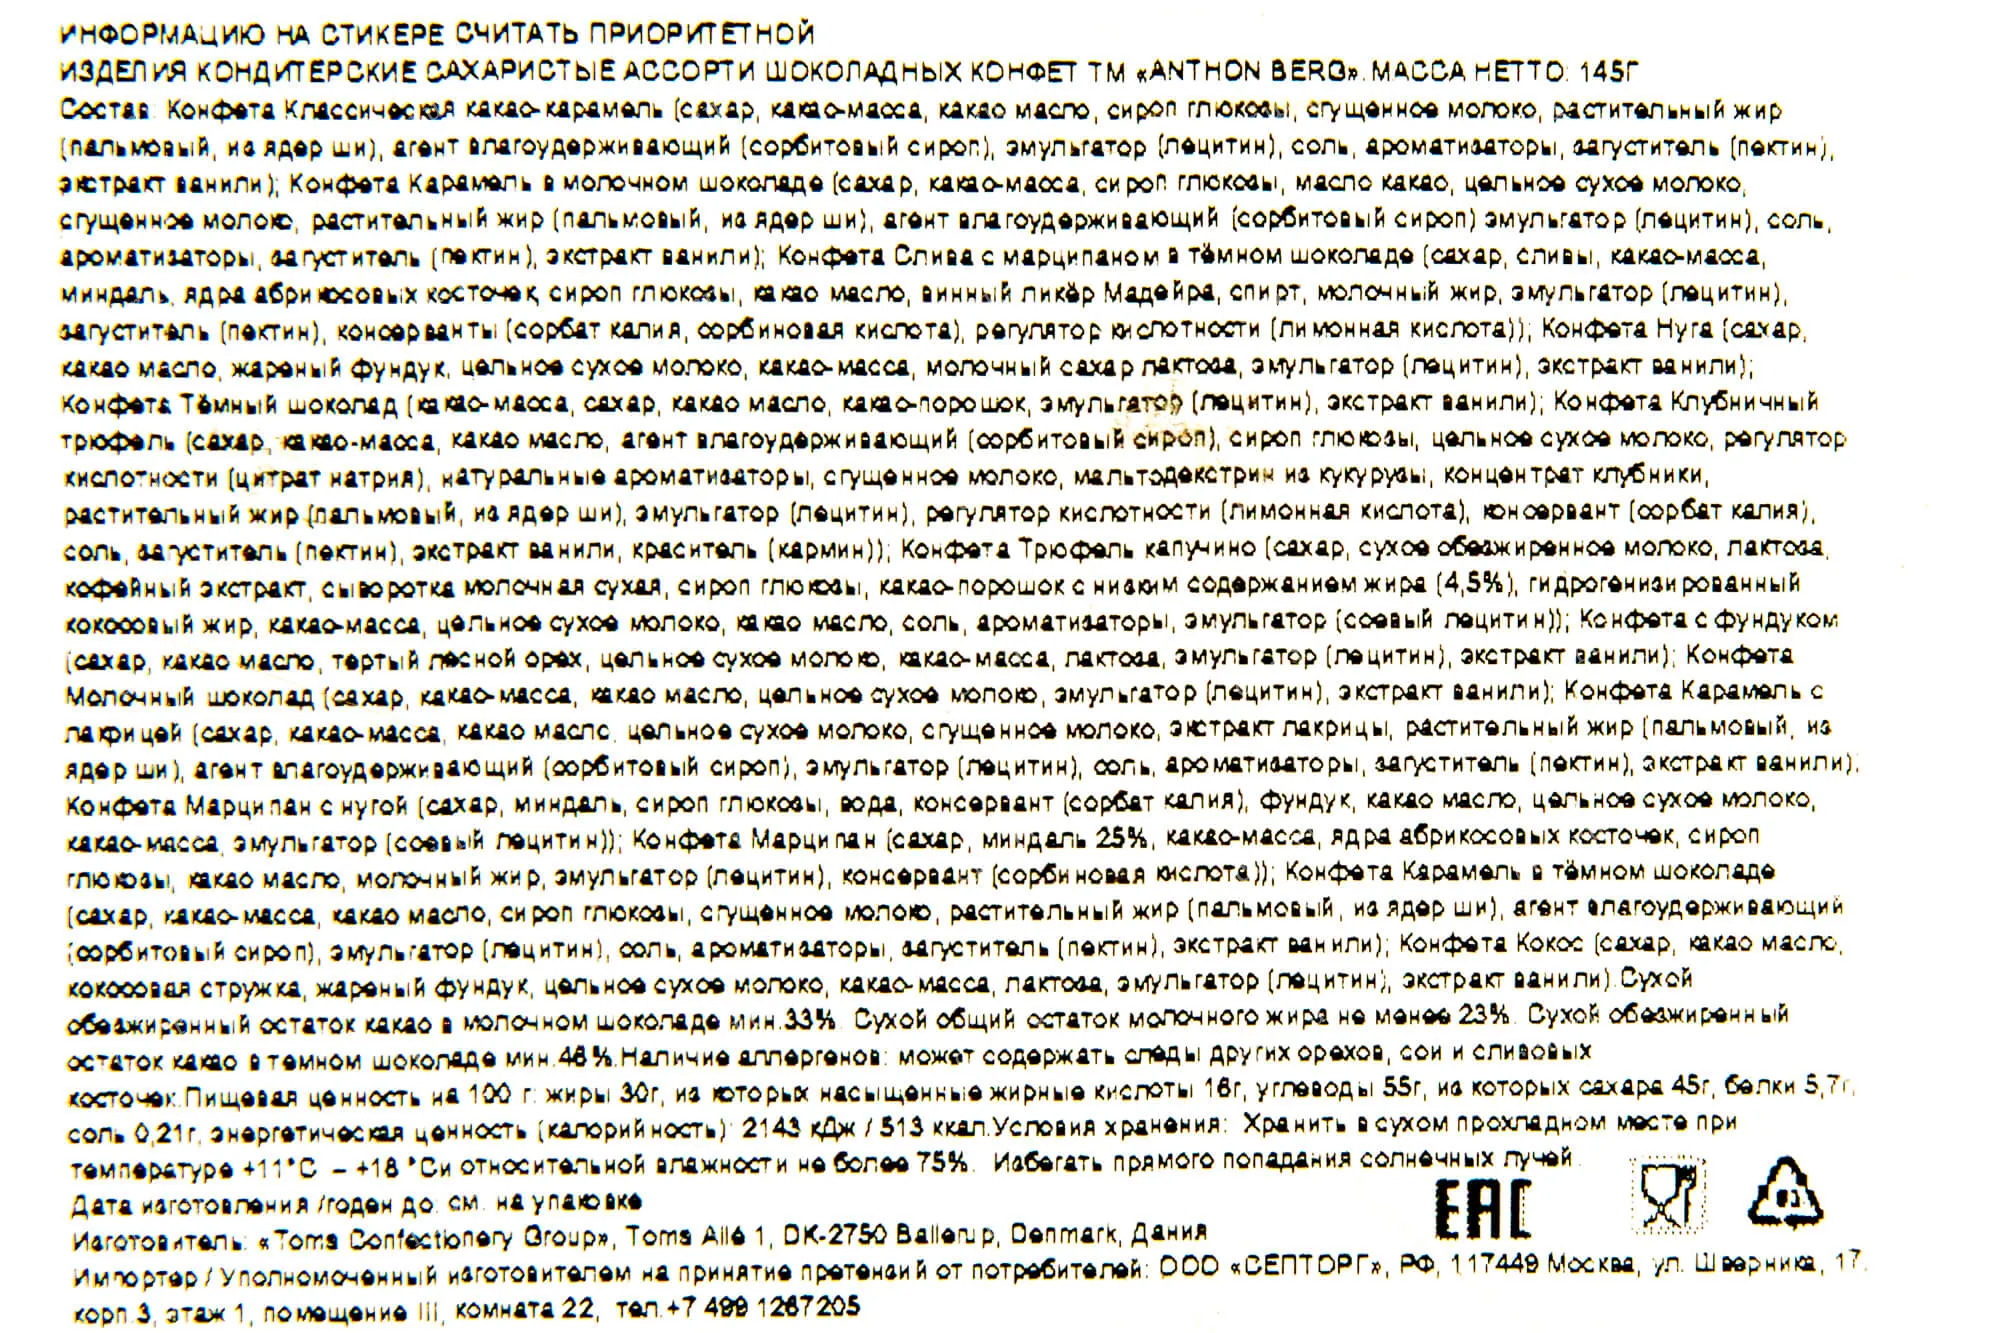 ИНФОРМАЦИЮ НА СТИКЕРЕ СЧИТАТЬ ПРИОРИТЕТНОЙ
ИЗДЕЛИЯ КОНДИТЕРСКИЕ САХАРИСТЫЕ АССОРТИ ШОКОЛАДНЫХ КОНФЕТ ТМ «ANTHON BERG». МАССА НЕТТО: 145Г
Состав: Конфета Классическая какао-карамель (сахар, какао-масса, какао масло, сироп глюкозы, сгущенное молоко, растительный жир
(пальмовый, из ядер ши), агент влагоудерживающий (сорбитовый сироп), эмульгатор (лецитин), соль, ароматизаторы, загуститель (пектин),
экстракт ванили); Конфета Карамель в молочном шоколаде (сахар, какао-масса, сироп глюкозы, масло какао, цельное сухое молоко,
сгущенное молоко, растительный жир (пальмовый, из ядер ши), агент влагоудерживающий (сорбитовый сироп) эмульгатор (лецитин), соль,
ароматизаторы, загуститель (пектин), экстракт ванили); Конфета Слива с марципаном в тёмном шоколаде (сахар, сливы, какао-масса,
миндаль, ядра абрикосовых косточек, сироп глюкозы, какао масло, винный ликёр Мадейра, спирт, молочный жир, эмульгатор (лецитин),
загуститель (пектин), консерванты (сорбат калия, сорбиновая кислота), регулятор кислотности (лимонная кислота)); Конфета Нуга (сахар,
какао масло, жареный фундук, цельное сухое молоко, какао-масса, молочный сахар лактоза, эмульгатор (лецитин), экстракт ванили);
Конфета Тёмный шоколад (какао-масса, сахар, какао масло, какао-порошок, эмульгатор (лецитин), экстракт ванили); Конфета Клубничный
трюфель (сахар, какао-масса, какао масло, агент влагоудерживающий (сорбитовый сироп), сироп глюкозы, цельное сухое молоко, регулятор
кислотности (цитрат натрия), натуральные ароматизаторы, сгущенное молоко, мальтодекстрин из кукурузы, концентрат клубники,
растительный жир (пальмовый, из ядер ши), эмульгатор (лецитин), регулятор кислотности (лимонная кислота), консервант (сорбат калия),
соль, загуститель (пектин), экстракт ванили, краситель (кармин)); Конфета Трюфель капучино (сахар, сухое обезжиренное молоко, лактоза,
кофейный экстракт, сыворотка молочная сухая, сироп глюкозы, какао-порошок с низким содержанием жира (4,5%), гидрогенизированный
кокосовый жир, какао-масса, цельное сухое молоко, какао масло, соль, ароматизаторы, эмульгатор (соевый лецитин)); Конфета с фундуком
(сахар, какао масло, тертый лесной орех, цельное сухое молоко, какао-масса, лактоза, эмульгатор (лецитин), экстракт ванили); Конфета
Молочный шоколад (сахар, какао-масса, какао масло, цельное сухое молоко, эмульгатор (лецитин), экстракт ванили); Конфета Карамель с
лакрицей (сахар, какао-масса, какао масло, цельное сухое молоко, сгущенное молоко, экстракт лакрицы, растительный жир (пальмовый, из
ядер ши), агент влагоудерживающий (сорбитовый сироп), эмульгатор (лецитин), соль, ароматизаторы, загуститель (пектин), экстракт ванили);
Конфета Марципан с нугой (сахар, миндаль, сироп глюкозы, вода, консервант (сорбат калия), фундук, какао масло, цельное сухое молоко,
какао-масса, эмульгатор (соевый лецитин)); Конфета Марципан (сахар, миндаль 25%, какао-масса, ядра абрикосовых косточек, сироп
глюкозы, какао масло, молочный жир, эмульгатор (лецитин), консервант (сорбиновая кислота)); Конфета Карамель в тёмном шоколаде
(сахар, какао-масса, какао масло, сироп глюкозы, сгущенное молоко, растительный жир (пальмовый, из ядер ши), агент влагоудерживающий
(сорбитовый сироп), эмульгатор (лецитин), соль, ароматизаторы, загуститель (пектин), экстракт ванили); Конфета Кокос (сахар, какао масло,
кокосовая стружка, жареный фундук, цельное сухое молоко, какао-масса, лактоза, эмульгатор (лецитин), экстракт ванили).Сухой
обезжиренный остаток какао в молочном шоколаде мин.33%. Сухой общий остаток молочного жира не менее 23%. Сухой обезжиренный
остаток какао в темном шоколаде мин.46%.Наличие аллергенов: может содержать следы других орехов, сои и сливовых
косточек.Пищевая ценность на 100 г: жиры 30г, из которых насыщенные жирные кислоты 16г, углеводы 55г, из которых сахара 45г, белки 5,7г,
соль 0,21г, энергетическая ценность (калорийность): 2143 кДж / 513 ккал.Условия хранения: Хранить в сухом прохладном месте при
температуре +11°С – +18 °Си относительной влажности не более 75%. Избегать прямого попадания солнечных лучей.
Дата изготовления /годен до: см. на упаковке
Изготовитель: «Toms Confectionery Group», Toms Allé 1, DK-2750 Ballerup, Denmark, Дания
Импортер / Уполномоченный изготовителем на принятие претензий от потребителей: ООО «СЕПТОРГ», РФ, 117449 Москва, ул. Шверника, 17,
корп.3, этаж 1, помещение III, комната 22, тел.+7 499 1267205
EAC
01